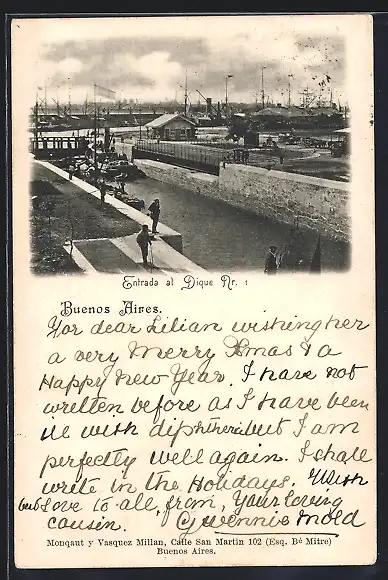 Entrada al Dique Nr. 1
Buenos Aires.
For dear Lilian wishing her
a very Merry Xmas & a
Happy New Year. I have not
written before as I have been
ill with diphtheria but I am
perfectly well again. I shall
write in the Holidays. With
best love to all, from, Your loving
cousin. Gwennie Mold
Monqaut y Vasquez Millan, Calle San Martin 102 (Esq. Bé Mitre)
Buenos Aires.